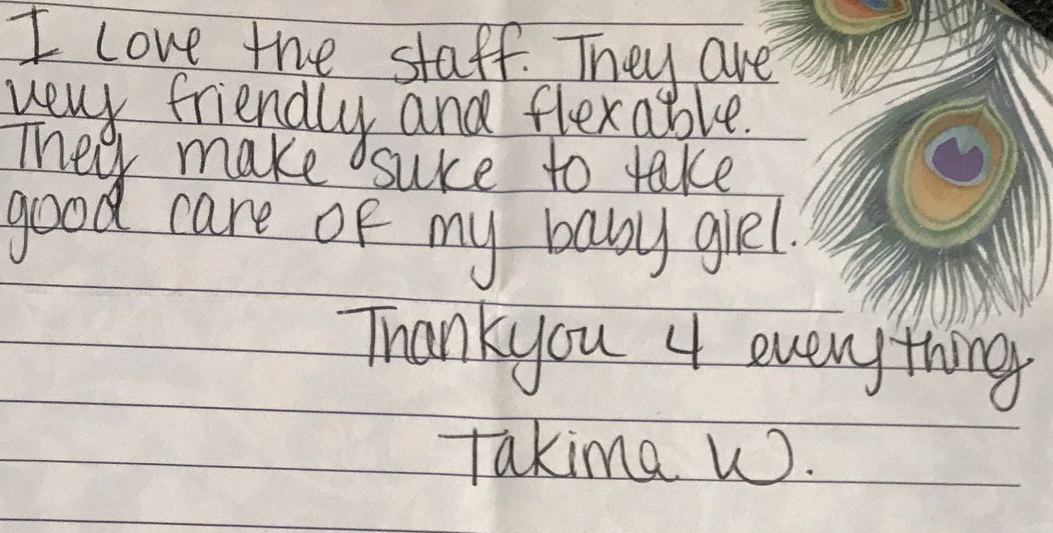 I Love the staff. They are
very friendly and flexable.
They make sure to take
good care of my baby girl.
Thankyou 4 everything
Takima W.